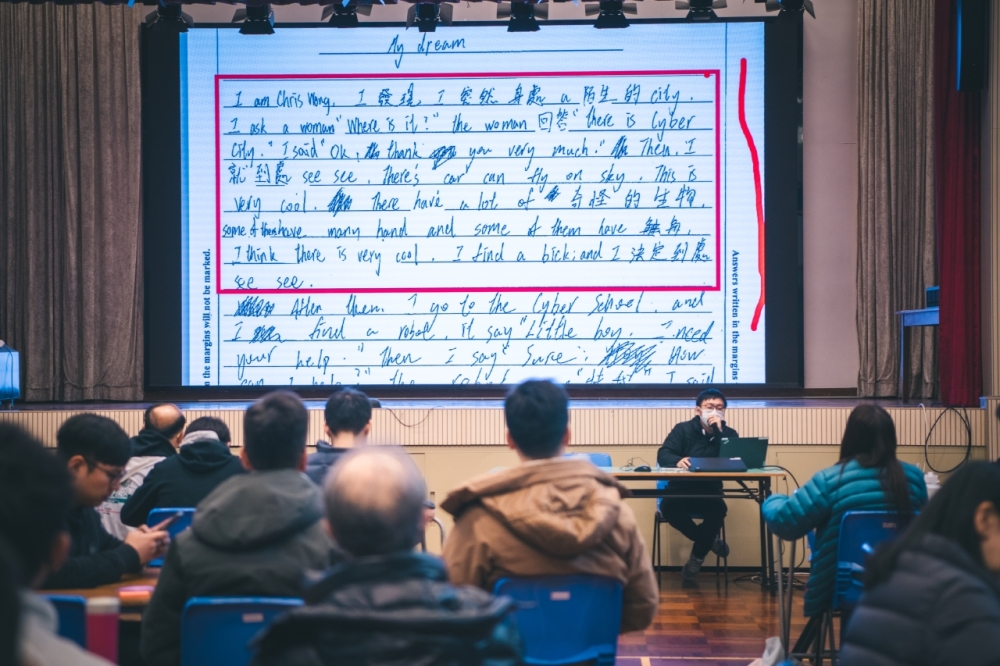 My dream
I am Chris Wong. I 發現, I 突然 身處 a 陌生 的 city.
I ask a woman "Where is it?" the woman 回答 "there is Cyber
City." I said "Ok, thank you very much." Then, I
就 到處 see see. There's car can fly on sky. This is
very cool. There have a lot of 奇怪 的 生物,
some of them have many hand and some of them have
I think there is very cool. I find a and I 決定 到處
see see.
After them I go to the Cyber School. and
I find a robot, it say "Little boy. I need
your help." Then I say "Sure". How
can I help?" the I said
n the margins will not be marked.
Answers written in the margins